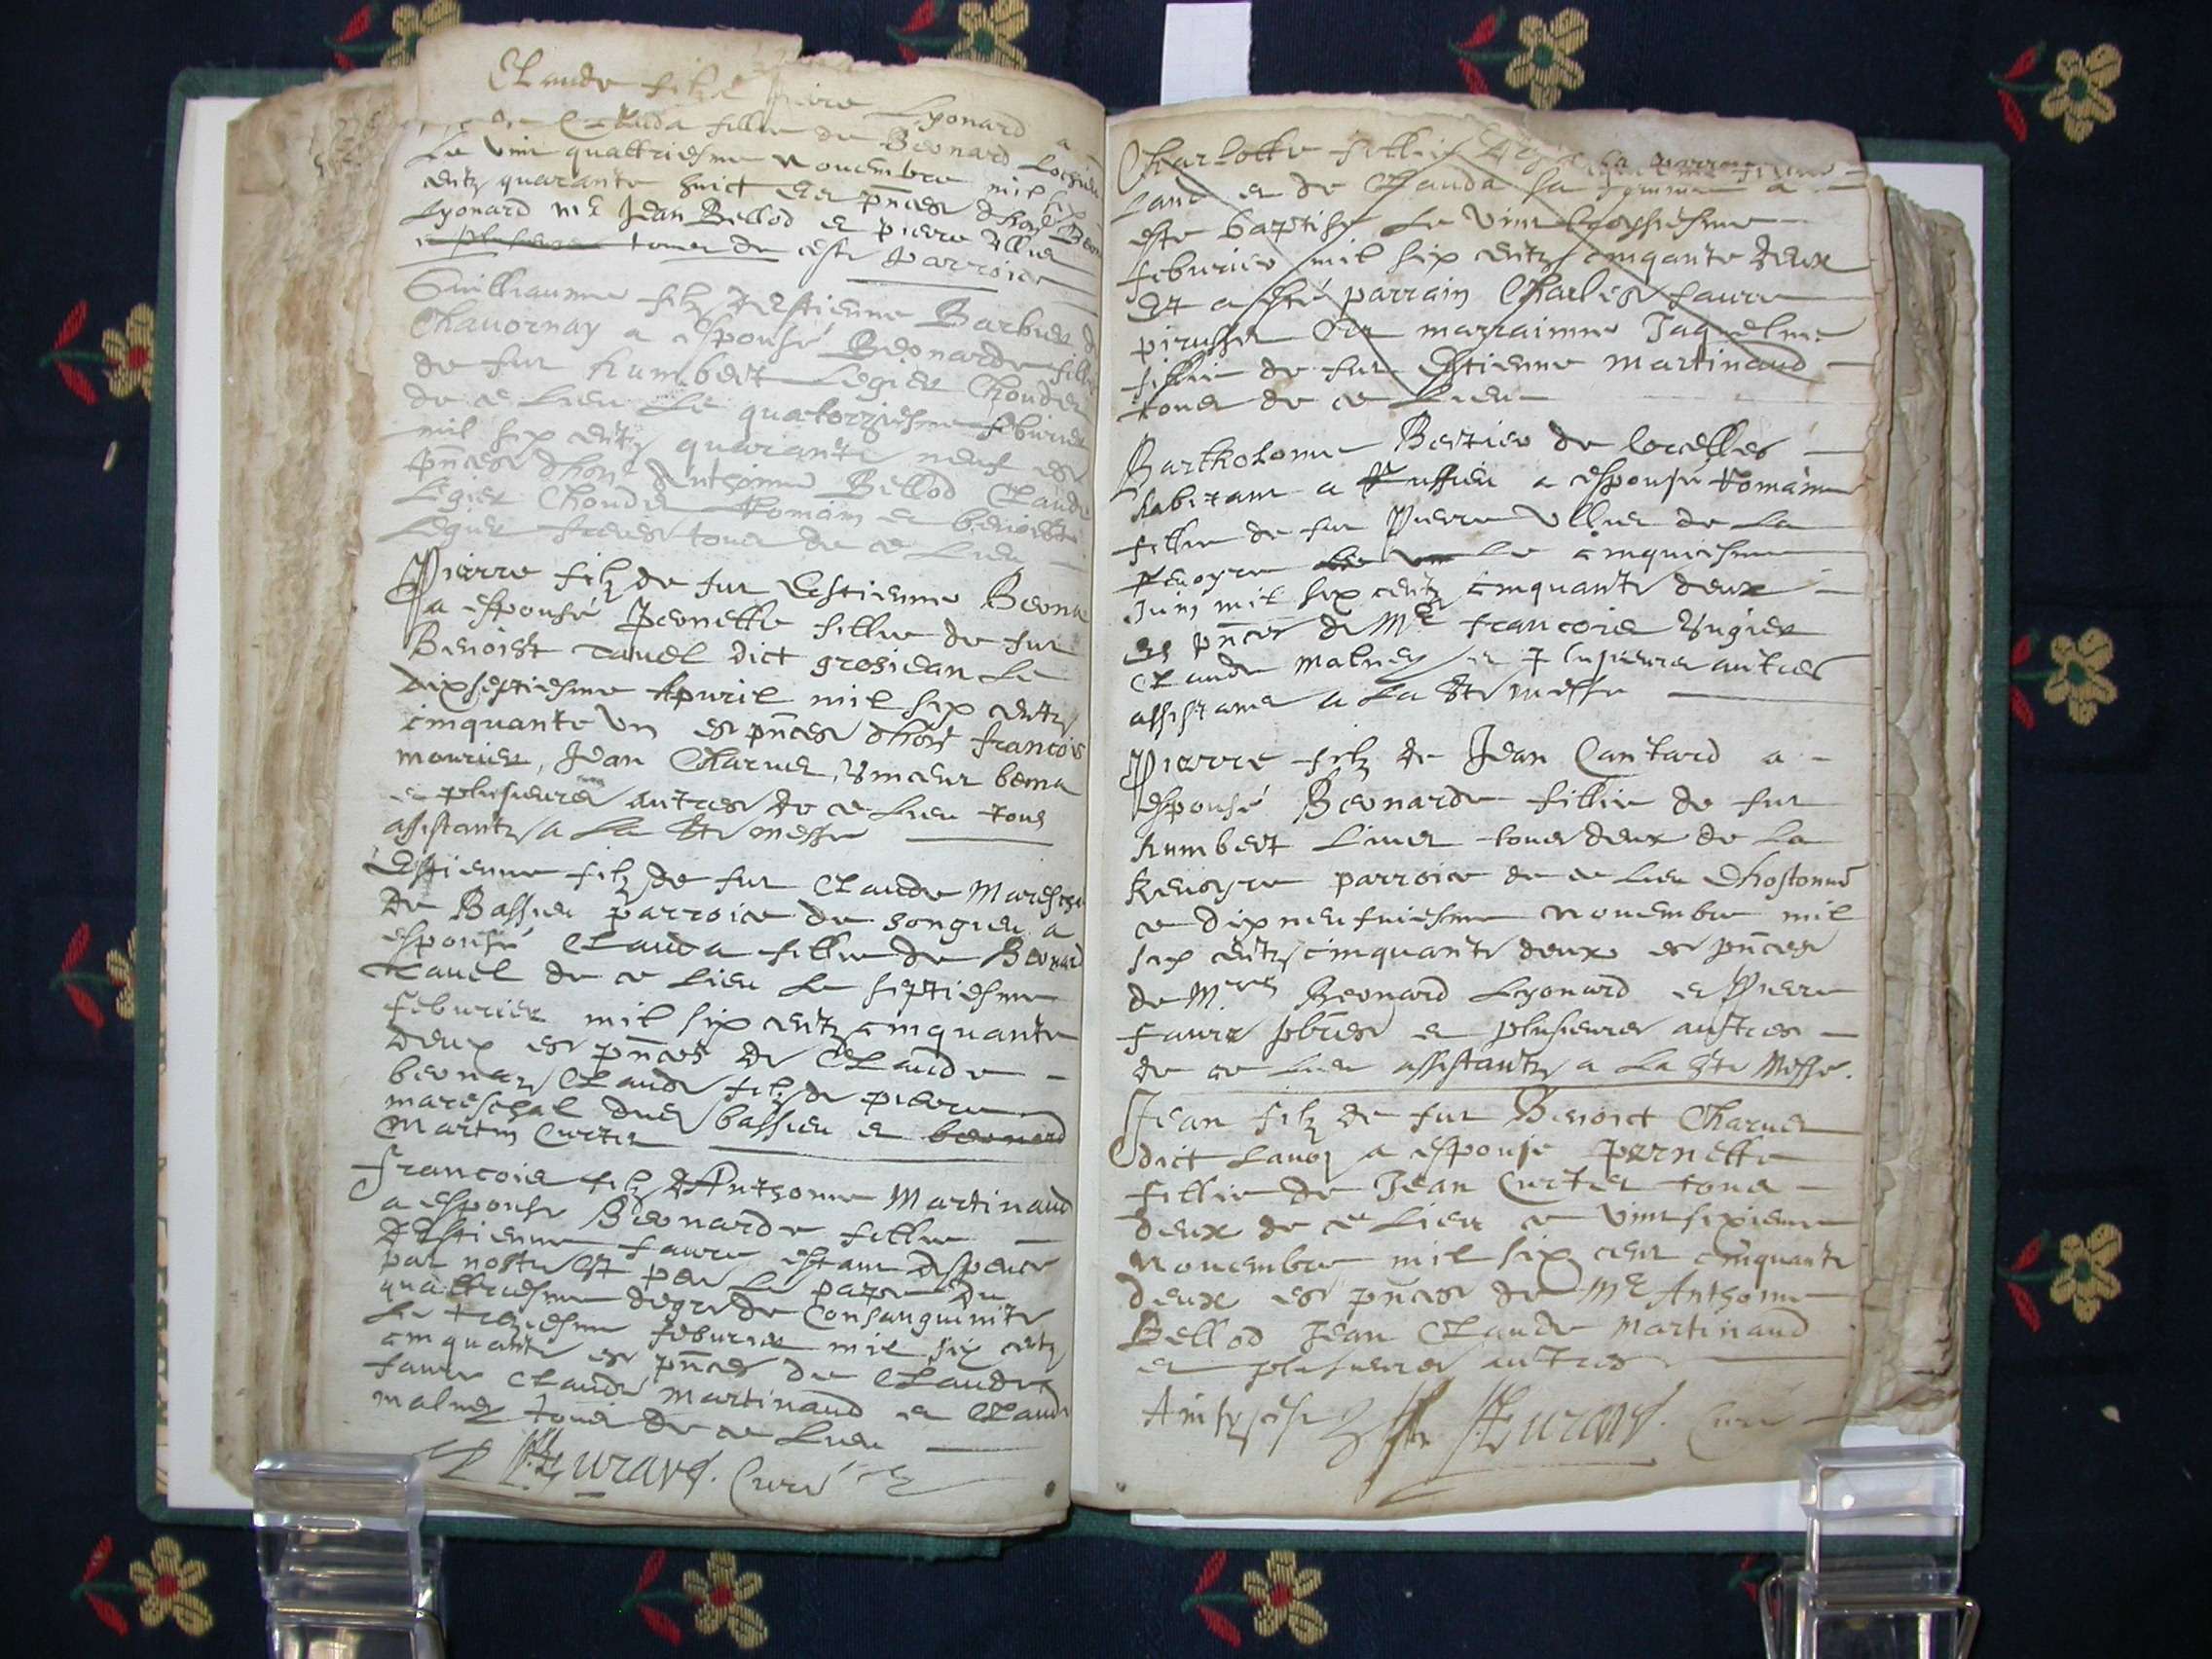 Claude filz Pierre Lyonard a
Clauda fillie de Bernard
Le vint quattriesme Nouembre mil six
centz quarante huict es pñces dhon
Lyonard Mᵉ Jean Bellod et pierre Ullier
tous de ceste parroice
Guilliaume filz destienne Barbier de
Chauornay a espousé Bernarde fillie
de fut humbert Legier Choudet
de ce Lieu Le quatorziesme feburier
mil six centz quarante neuf es
pñces dhon Anthoine Bellod Claude
Legier Choudet Romain et benoist
Legier freres tous de ce Lieu
Pierre filz de fut Estienne Berna
a espousé Pernette fillie de fut
Benoist tauel dict grosjean Le
dixseptiesme Apuril mil six centz
cinquante un es pñces dhon francois
mourier, Jean Charuet, Vincent berna
et plusieures autres de ce Lieu tous
assistantz a La Ste messe
Estienne filz de fut Claude Mareschal
de Bassieu parroice de Songieu a
espousé Clauda fillie de Bernard
Tauel de ce Lieu Le septiesme
feburier mil six centz cinquante
deux es pñces de Claude
bernaz Claude filz de pierre
mareschal dud bassieu et bernard
Martin Curtet
Francois filz dAnthoine Martinaud
a espouse Bernarde fillie
dEstienne faure estant dispencé
par nostre St pere Le pape du
quattriesme degre de Consanguinite
Le treziesme feburier mil six centz
cinquante es pñces de Claude
faure Claude Martinaud et Claude
malnez tous de ce Lieu
Curé
Charlotte fillie
Land et de Clauda sa femme a
este baptisee Le vint
feburier mil six centz cinqante deux
Et a esté parrain Charles faure
et marraimne Jaquelme
fillie de fut Estienne Martinaud
tous de ce Lieu
Bartholome Bertier de
habitant a Ruffieu a espousé Romaine
fillie de fut Pierre Ullier de La
Reuoyre Le cinquiesme
Juin mil six centz cinquante deux
es pñces de Mᵉ francois Rugier
Claude Malnez et plusieures autres
assistants a La Ste messe
Pierre filz de Jean Cantard a
espousé Bernarde fillie de fut
humbert Liuet tous deux de La
Reuoyre parroice de ce Lieu dhostonne
ce dixneufuiesme nouembre mil
six centz cinquante deux es pñces
de Mʳᵉˢ Bernard Lyonard et Pierre
faure pbres et plusieures autres
de ce Lieu assistantz a La Ste Messe.
Jean filz de fut Benoict Charuet
dict Lauoz a espouse Pernette
fillie de Jean Curtet tous
deux de ce Lieu ce vintsixieme
Nouembre mil six cent cinquante
deux es pñces de Mᵉ Anthoine
Bellod Jean Claude Martinaud
et plusieures autres
Curé